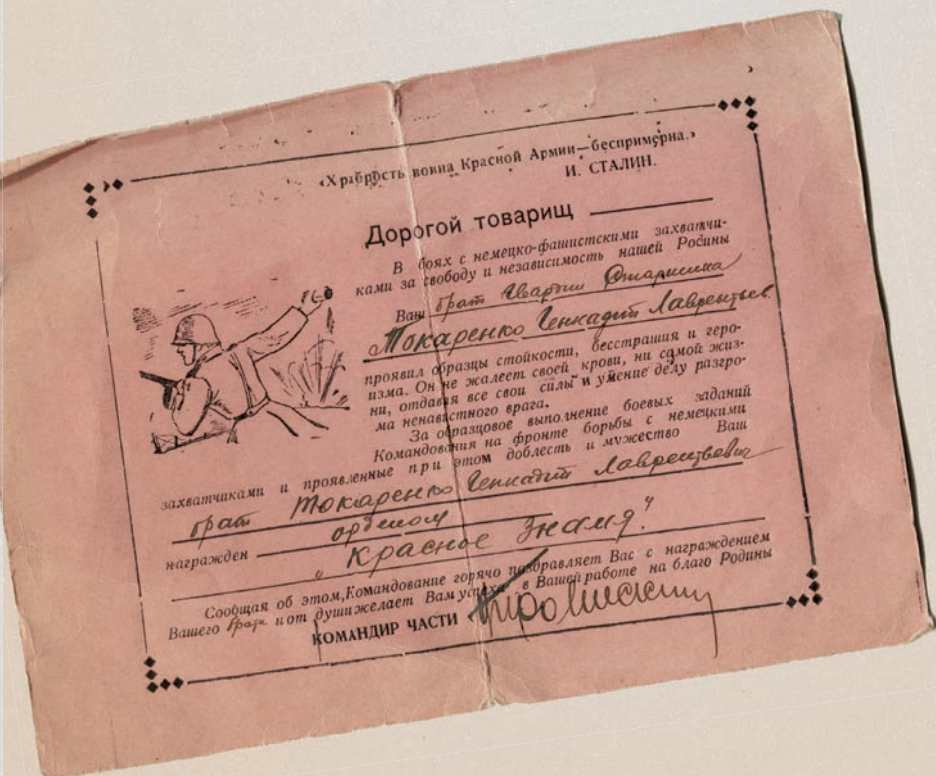 «Храбрость воина Красной Армии—беспримерна.»
И. СТАЛИН.
Дорогой товарищ
В боях с немецко-фашистскими захватчи-
ками за свободу и независимость нашей Родины
Ваш брат Гвардии Старшина
Токаренко Геннадий Лаврентьев
проявил образцы стойкости, бесстрашия и геро-
изма. Он не жалеет своей крови, ни самой жиз-
ни, отдавая все свои силы и умение делу разгро-
ма ненавистного врага.
За образцовое выполнение боевых заданий
Командования на фронте борьбы с немецкими
захватчиками и проявленные при этом доблесть и мужество Ваш
брат Токаренко Геннадий Лаврентьевич
награжден орденом
„Красное Знамя“
Сообщая об этом, Командование горячо поздравляет Вас с награждением
Вашего брата и от души желает Вам успеха в Вашей работе на благо Родины
КОМАНДИР ЧАСТИ